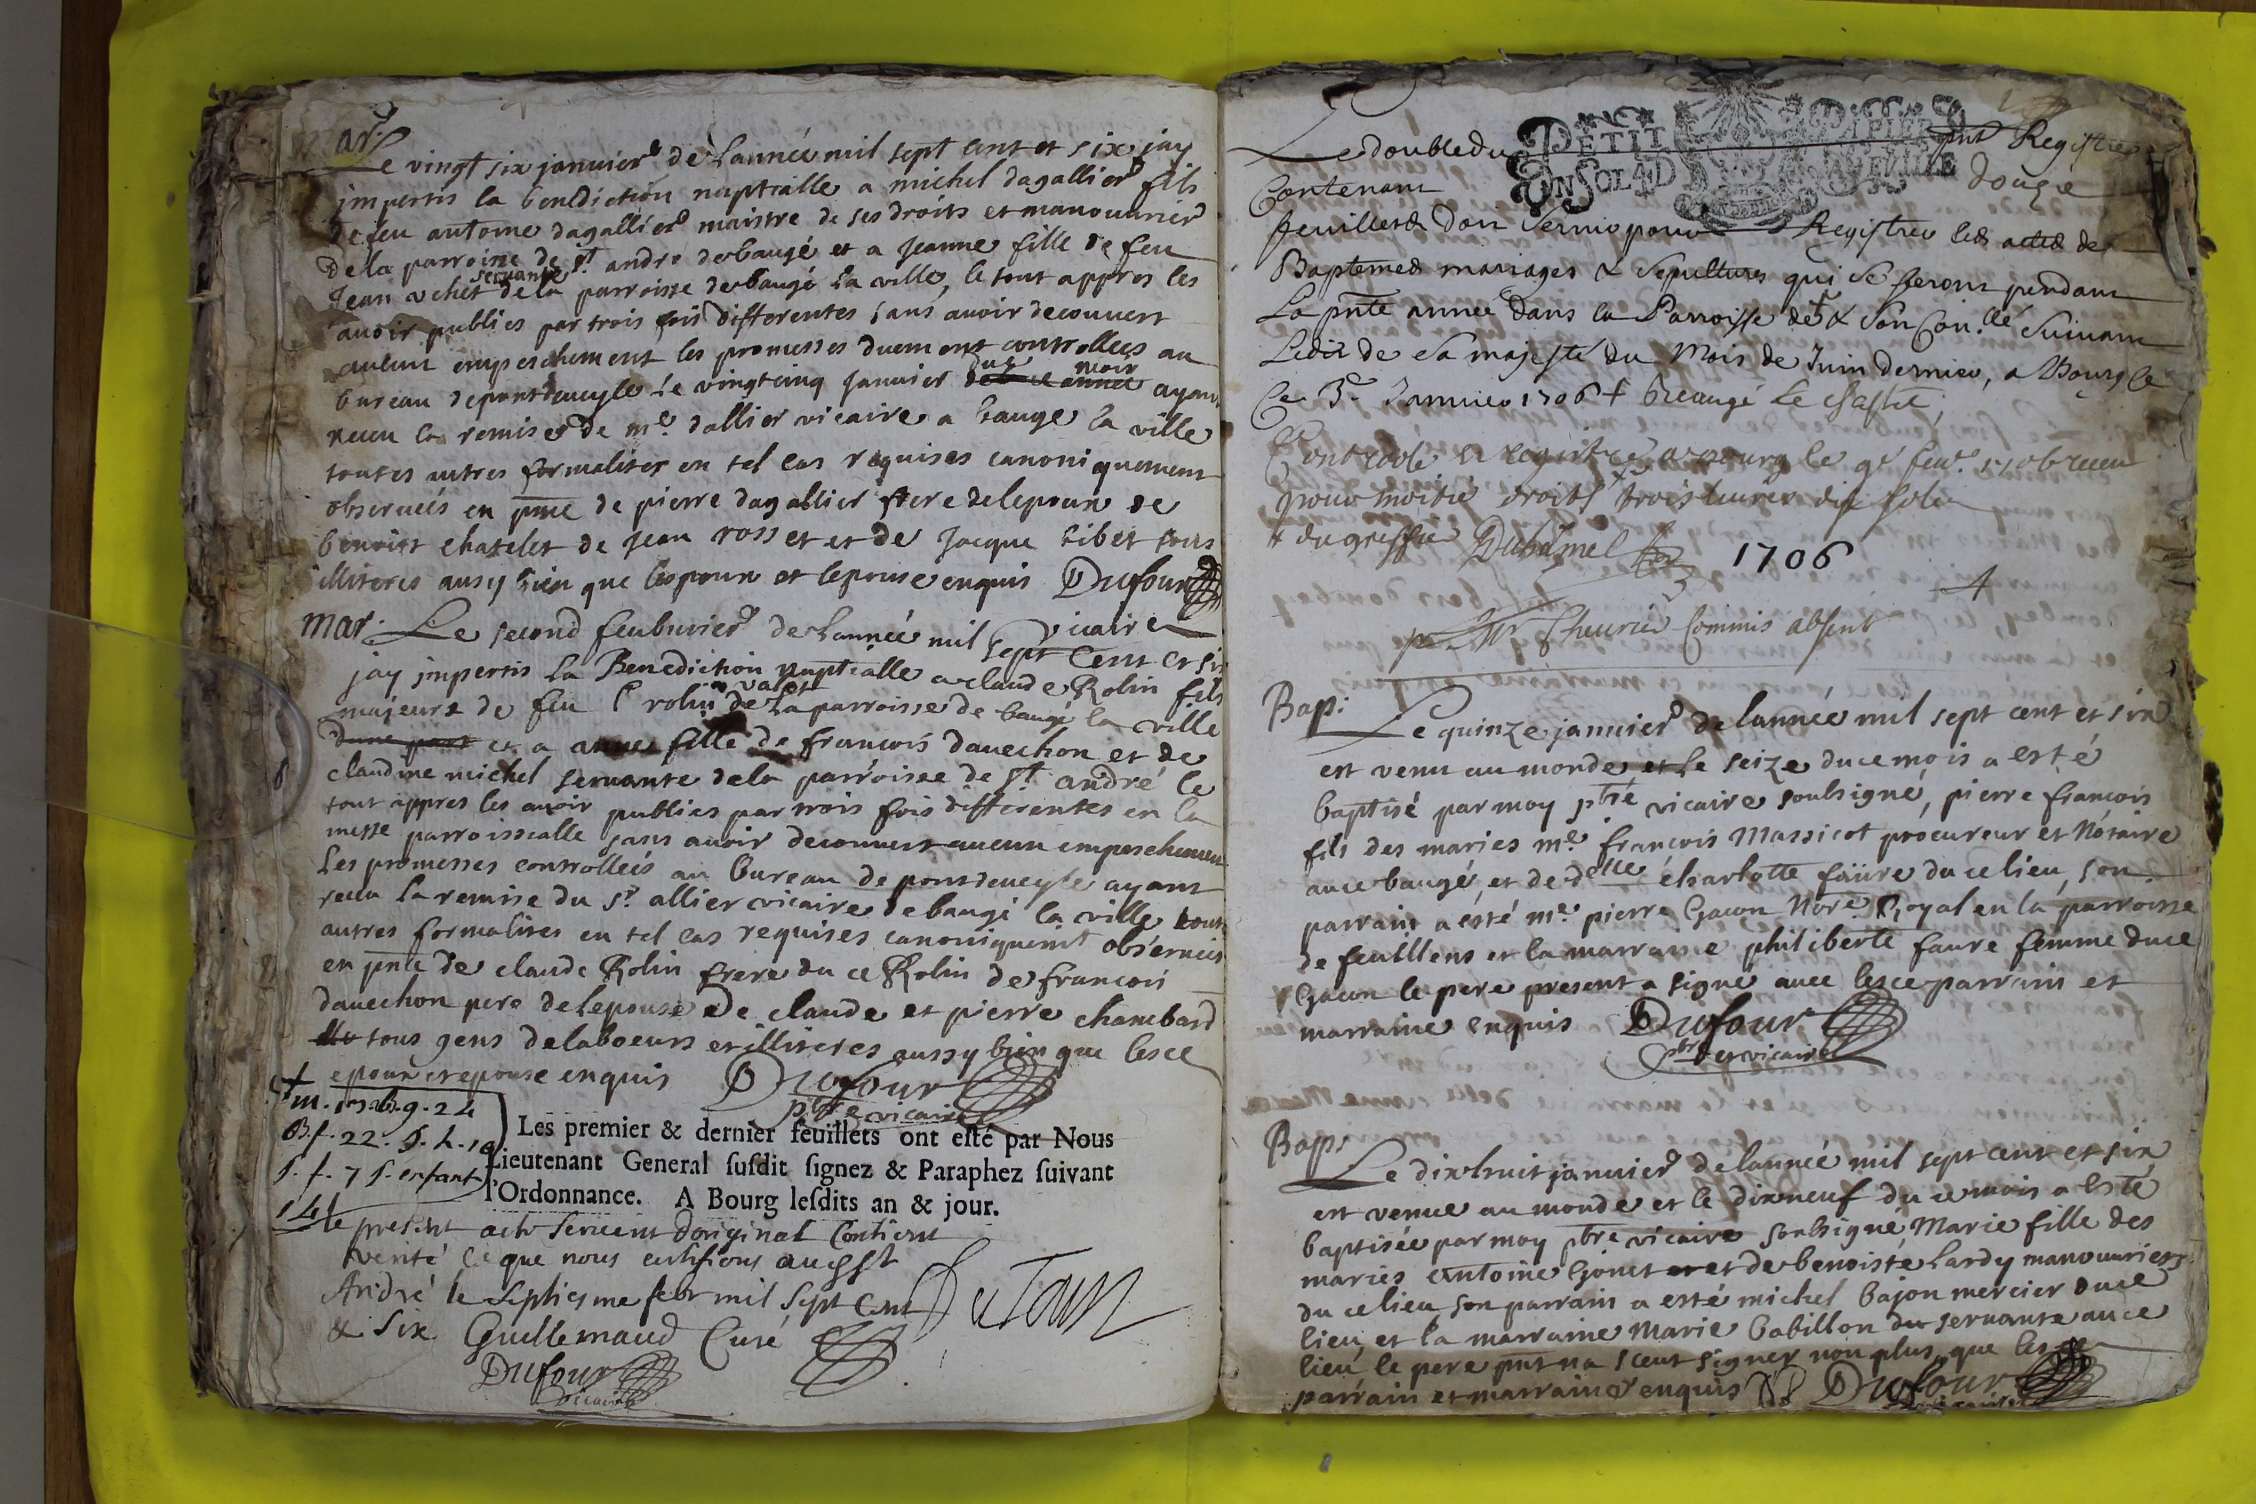 mar.
Le vingt six januier de Lannée mil sept cent et six jay
impertis la benediction nuptialle a michel dagallier fils
de feu antoine dagallier maistre de ses droits et manouurier
De la parroisse de St andre de baugé et a Jeanne fille de feu
Jean uchet servante de la parroisse de baugé la ville, le tout appres les
auoir publies par trois fois differentes sans auoir decouuert
aucun empeschement les promesses duement controllees au
bureau de pontdeueyle Le vingtcinq januier dud mois ayant
receu la remise de me. dallier vicaire a bauge la ville
toutes autres formalites en tel cas requises canoniquement
obseruees en pnce de pierre dagallier frere de lepoux de
benoist chatelet de Jean rosset et de Jacque libet tous
illiteres ausy bien que lespoux et lepouse enquis Dufour
vicaire
mar. Le second feubvrier de Lannée mil sept cent et six
jay impertis la Benediction nuptialle a claude Rolin fils
majeur de feu Cl rolin valet de la parroisse de baugé la ville
dune part et a anne fille de francois dauechon et de
claudine michel seruante de la parroisse de St. andré le
tout appres les auoir publies par trois fois differentes en la
messe parroissialle sans auoir decouuert aucun empeschement
Les promesses controlleés au bureau de pontdeueyle ayant
receu la remise du Sr. allier vicaire de baugé la ville tout
autres formalites en tel cas requises canoniquemt obseruees
en pnce de claude Rolin frere du ce Rolin de francois
dauechon pere de lepouse de claude et pierre chambard
tous gens de laboeurs et illiteres aussy bien que lesce
epoux et epouse enquis Dufour
ptre vicaire
B.f. 22. S. h. 10
S. f. 7 S. enfant
14
Les premier & dernier feuillets ont eſté par Nous
Lieutenant General ſuſdit ſignez & Paraphez ſuivant
l'Ordonnance. A Bourg leſdits an & jour.
le present acte seruent doriginal Contient
verité ce que nous certifions audSt
André le septiesme febr mil sept cent
& six Guillemaud Curé
Dufour
vicaire
PETIT PAPIER
Le double du pnt Registre
Contenant douze
feuillets doit Seruir pour Registrer les actes de
Baptemes mariages & Sepultures qui se feront pendant
La pnte année dans la Parroisse de + & Son Con.llé Suivant
Ledit de Sa majesté du Mois de Juin dernier, a Bourg le
Ce 3e Januier 1706 + beaugé Le chastel,
Controolé et registré a bourg le 9e feur. 1706 receu
pour moitié droits trois liures dix sols
+ du greffe Duhamel
1706
pr Mr Cheurier Commis absent
Bap:
Le quinze januier de lannée mil sept cent et six
est venu au monde et le seize du ce mois a esté
baptisé par moy ptre vicaire soubsigné, pierre francois
fils des maries me. francois Massicot procureur et Nótaire
au ce baugé, et de delle charlotte faüre du ce lieu, son
parrain a esté me. pierre Gacon Nore Royal en la parroisse
de feuillens et la marraine philiberte faure femme du ce
Gacon le pere present a signé auec lesce parrain et
marraine enquis Dufour
ptre et vicaire
Bap:
Le dixhuit januier de lannée mil sept cent et six
est venue au monde et le dixneuf du ce mois a esté
baptisée par moy ptre vicaire soubsigné Marie fille des
maries Antoine Gonet et de benoiste Lardy manouuriers
du ce lieu son parrain a esté michel bajon mercier du ce
lieu et la marraine Marie babillon seruante au ce
lieu le pere pnt na sceut signer non plus que lesce
parrain et marraine enquis Dufour
vicaire